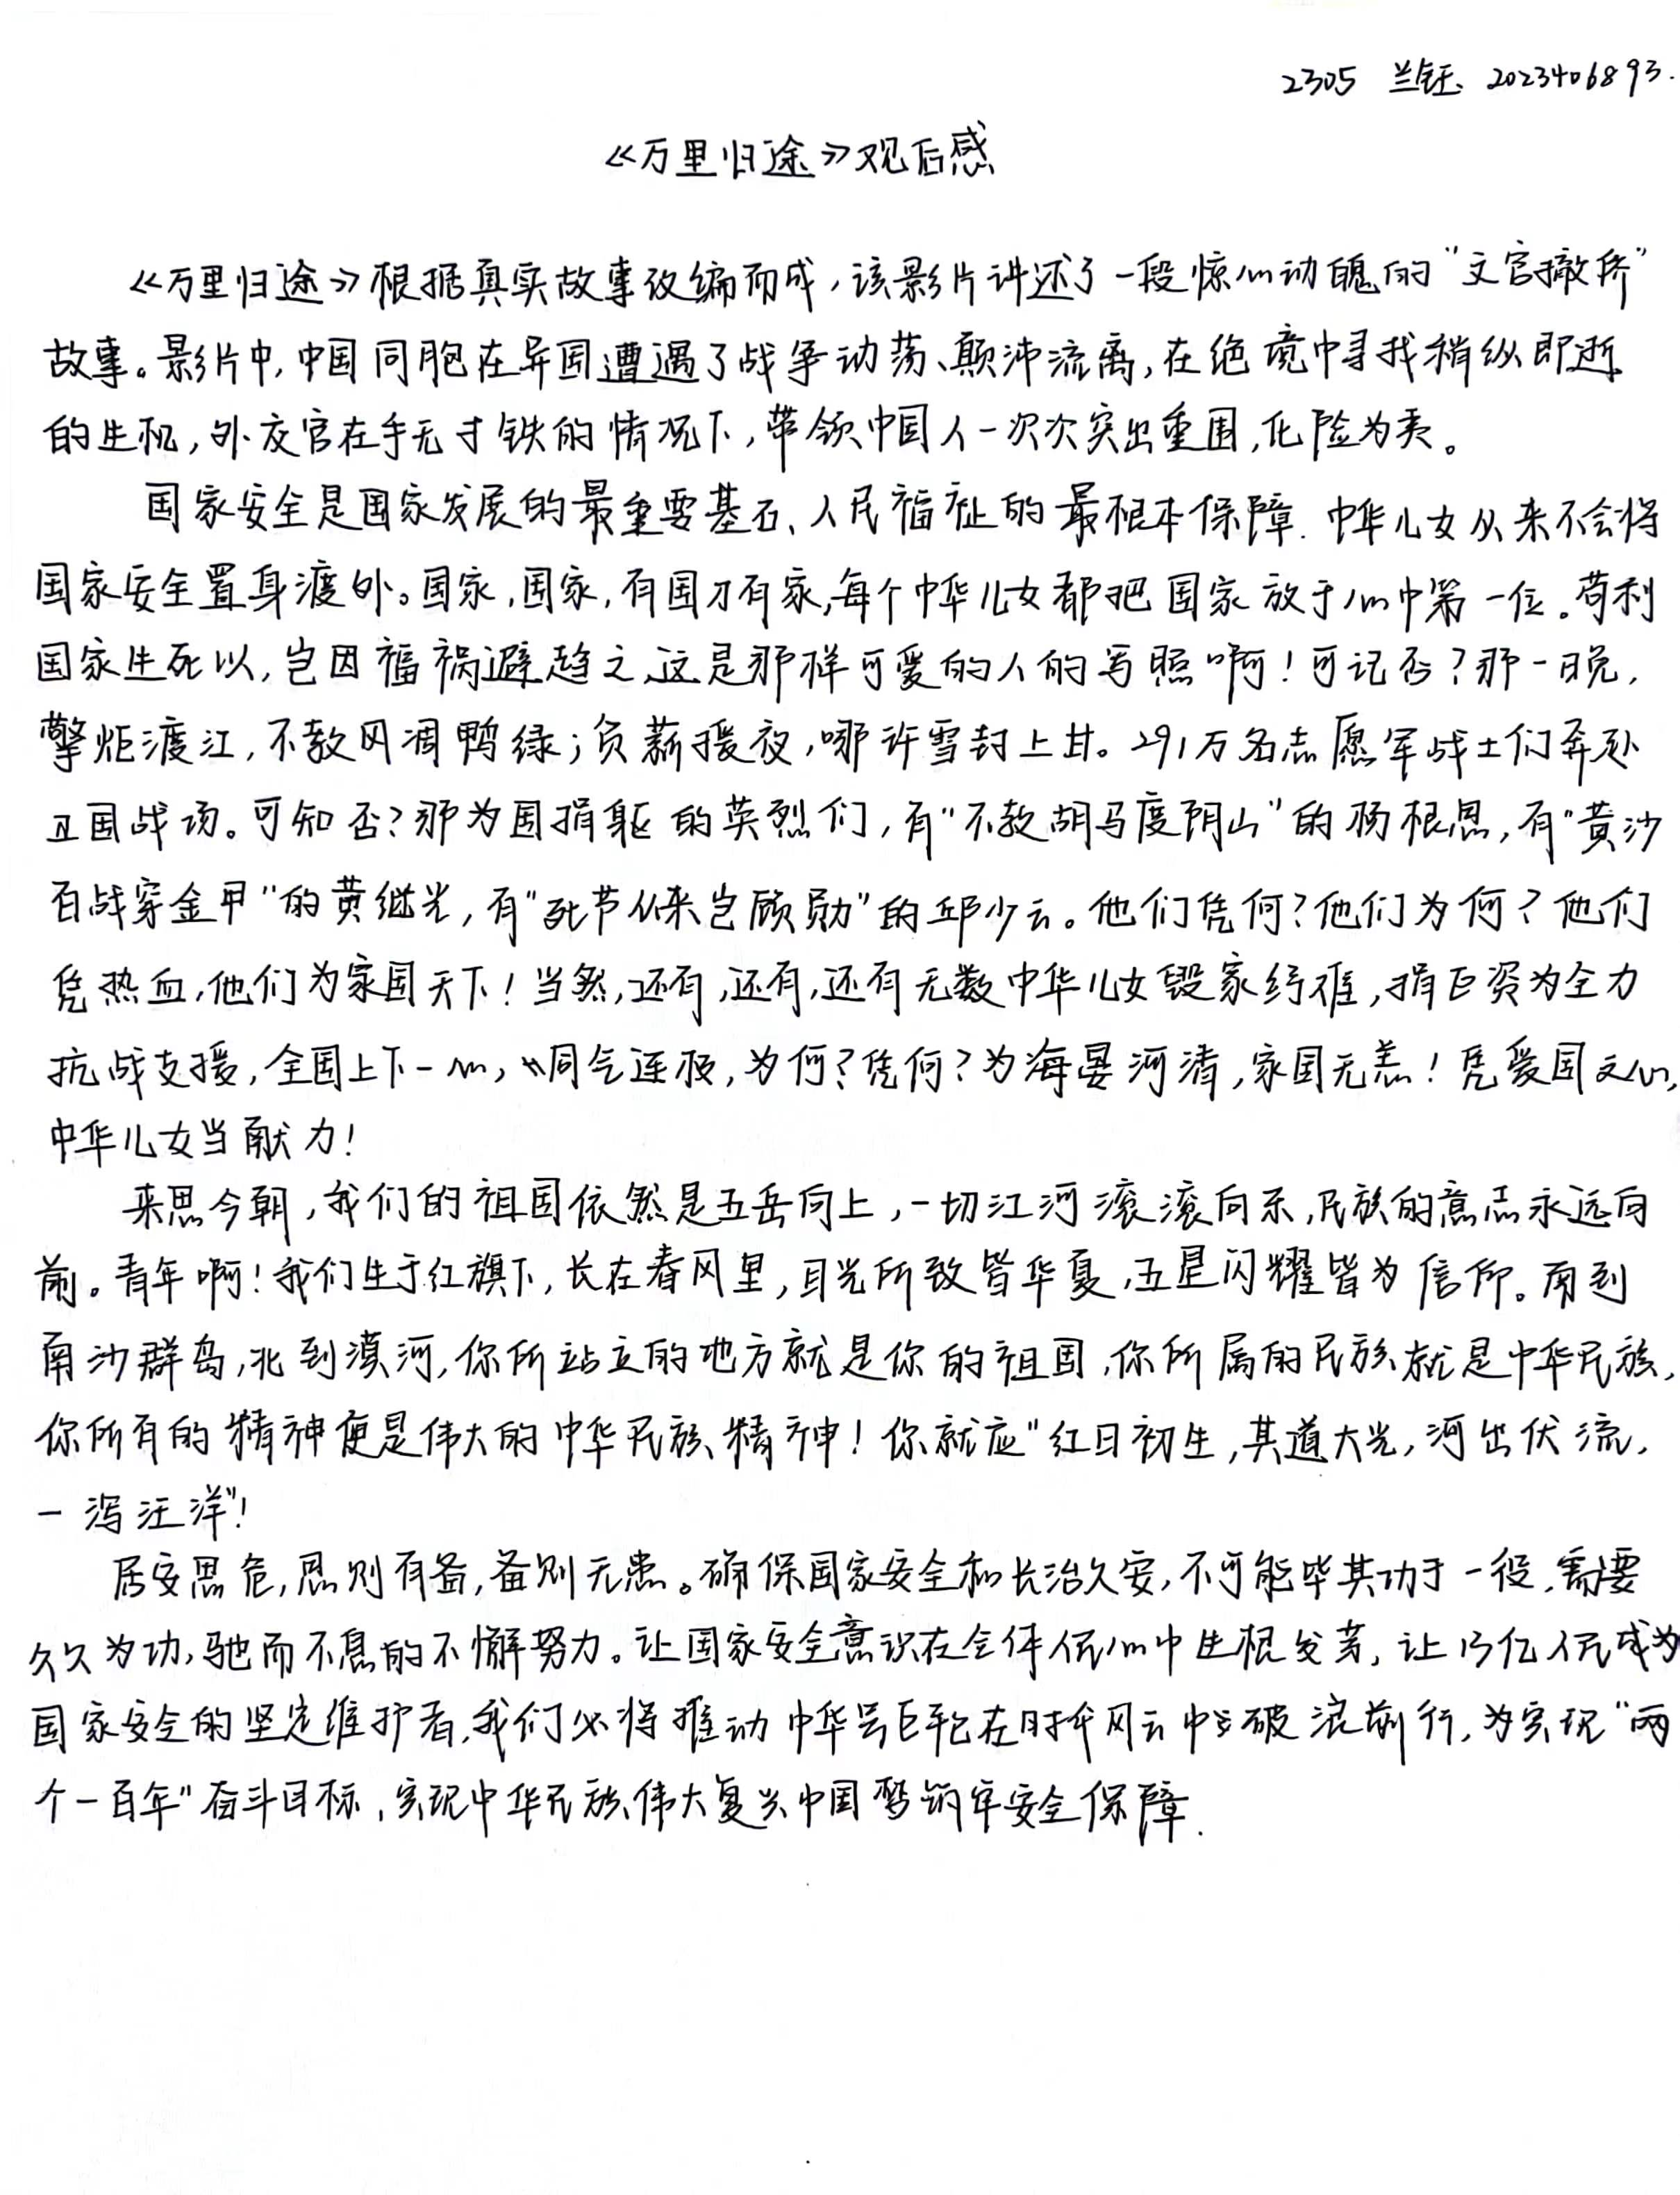 2305 兰钰 2023406893.
《万里归途》观后感
《万里归途》根据真实故事改编而成,该影片讲述了一段惊心动魄的“文官撤侨”
故事。影片中,中国同胞在异国遭遇了战争动荡、颠沛流离,在绝境中寻找稍纵即逝
的生机,外交官在手无寸铁的情况下,带领中国人一次次突出重围,化险为夷。
国家安全是国家发展的最重要基石、人民福祉的最根本保障.中华儿女从来不会将
国家安全置身渡外。国家,国家,有国才有家,每个中华儿女都把国家放于心中第一位。苟利
国家生死以,岂因福祸避趋之,这是那样可爱的人的写照啊!可记否?那一晚,
擎炬渡江,不教风凋鸭绿;负薪援夜,哪许雪封上甘。291万名志愿军战士们奔赴
卫国战场。可知否?那为国捐躯的英烈们,有“不教胡马度阴山”的杨根思,有“黄沙
百战穿金甲”的黄继光,有“死节从来岂顾勋”的邱少云。他们凭何?他们为何?他们
凭热血,他们为家国天下!当然,还有,还有,还有无数中华儿女毁家纾难,捐巨资为全力
抗战支援,全国上下一心,同气连枝,为何?凭何?为海晏河清,家国无恙!凭爱国之心,
中华儿女当献力!
来思今朝,我们的祖国依然是五岳向上,一切江河滚滚向东,民族的意志永远向
前。青年啊!我们生于红旗下,长在春风里,目光所致皆华夏,五星闪耀皆为信仰。南到
南沙群岛,北到漠河,你所站立的地方就是你的祖国,你所属的民族就是中华民族,
你所有的精神便是伟大的中华民族精神!你就应“红日初生,其道大光,河出伏流,
一泻汪洋”!
居安思危,思则有备,备则无患。确保国家安全和长治久安,不可能毕其功于一役,需要
久久为功,驰而不息的不懈努力。让国家安全意识在全体人民心中生根发芽,让13亿人民成为
国家安全的坚定维护者,我们必将推动中华号巨轮在时代风云中破浪前行,为实现“两
个一百年”奋斗目标,实现中华民族伟大复兴中国梦筑牢安全保障.